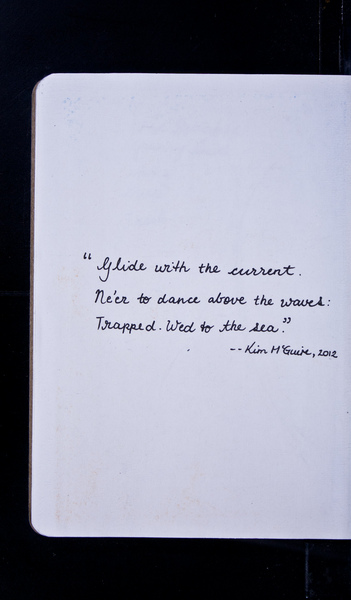 “Glide with the current.
Ne'er to dance above the waves:
Trapped. Wed to the sea.”
-- Kim McGuire, 2012